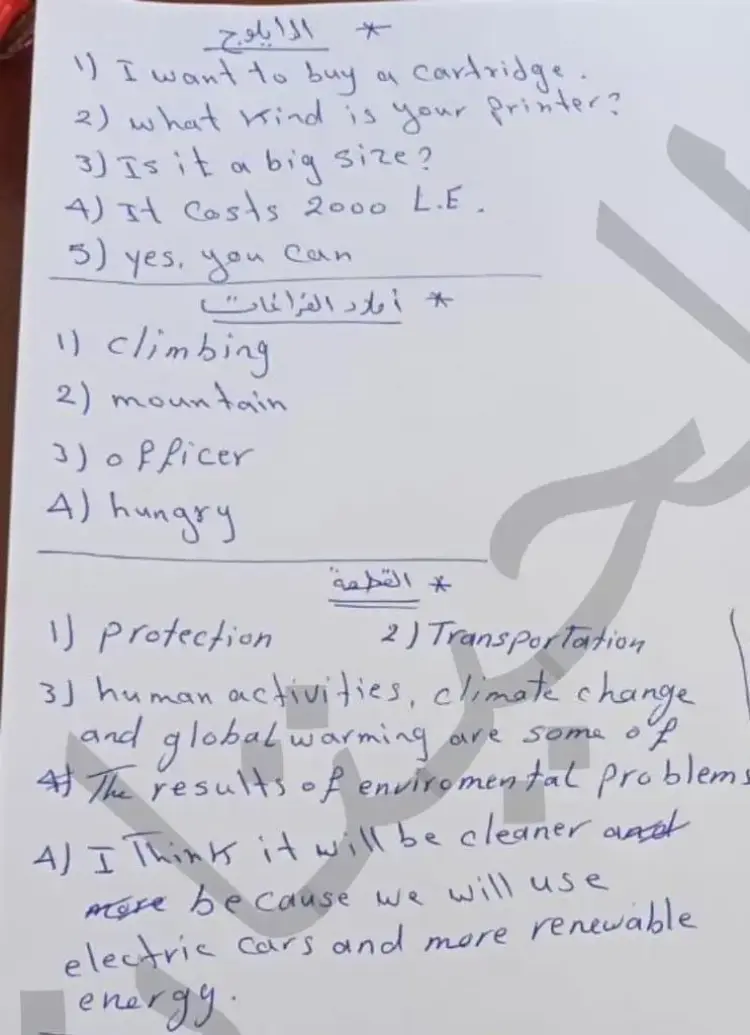 * الدايلوج
1) I want to buy a cartridge.
2) what kind is your printer?
3) Is it a big size?
4) It costs 2000 L.E.
5) yes, you can
* أملاد الفراغات
1) climbing
2) mountain
3) officer
4) hungry
* القطعة
1) protection 2) Transportation
3) human activities, climate change
and global warming are some of
The results of enviromental problems
4) I Think it will be cleaner
because we will use
electric cars and more renewable
energy.